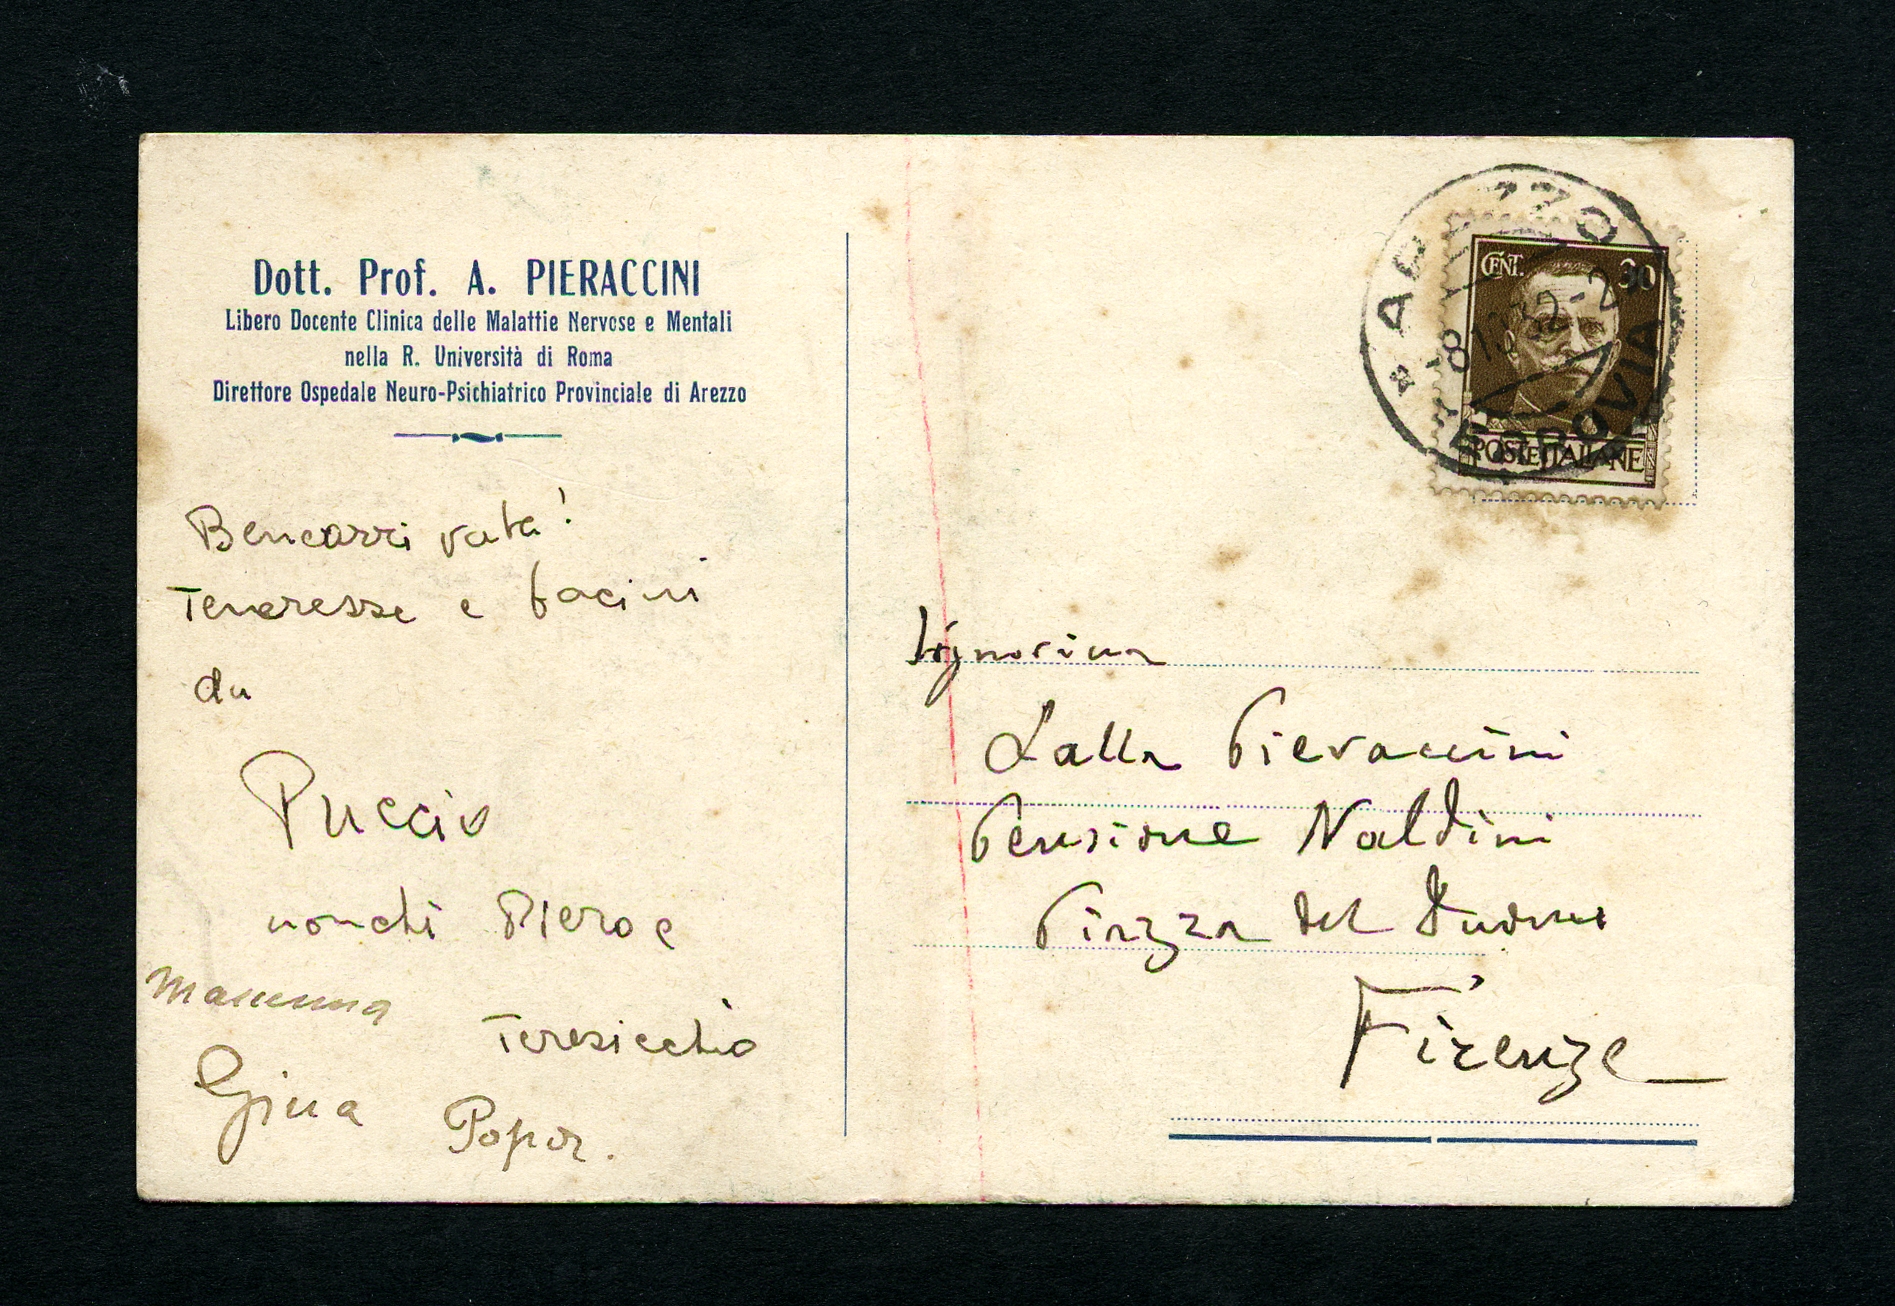 Dott. Prof. A. PIERACCINI
Libero Docente Clinica delle Malattie Nervose e Mentali
nella R. Università di Roma
Direttore Ospedale Neuro-Psichiatrico Provinciale di Arezzo
Bencarrivata!
Teneresse e bacini
da
Puccio
nonchi Piero e
Mamma
Teresicchio
Gina
AREZZO
FERROVIA
CENT. 30
POSTE ITALIANE
Signorina
Lalla Pieraccini
Pensione Naldini
Piazza del Duomo
Firenze